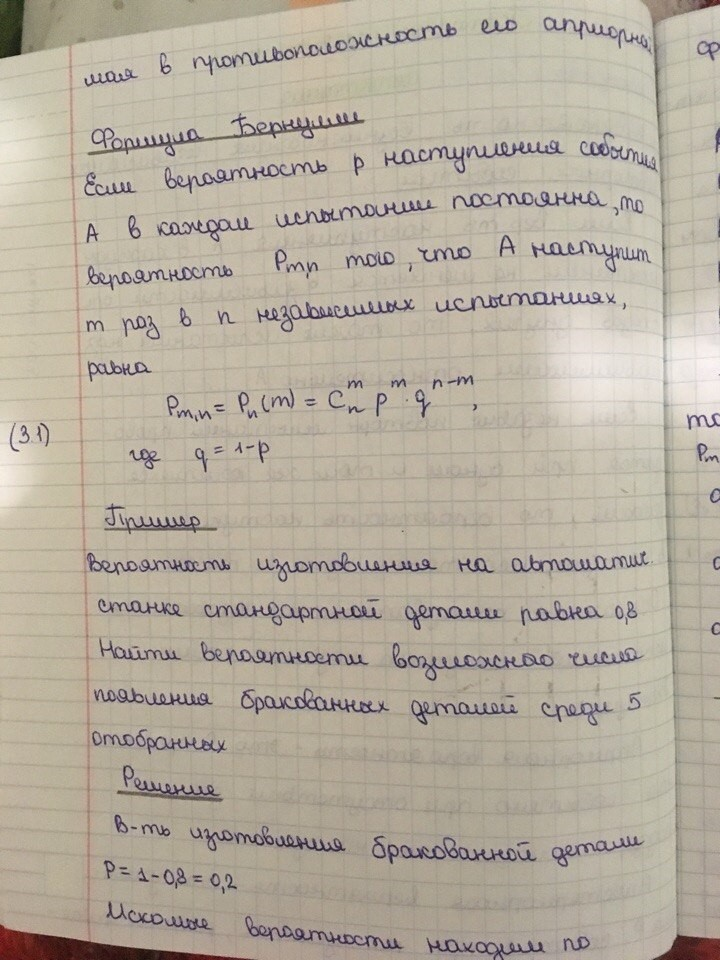 мая в противоположность его априорна
Формула Бернулли
Если вероятность p наступления события
A в каждом испытании постоянна, то
вероятность Pm,n того, что A наступит
m раз в n независимых испытаниях,
равна
Pm,n = Pn(m) = C_n^m p^m · q^{n-m},
(3.1)
где q = 1-p
Пример
Вероятность изготовления на автоматич.
станке стандартной детали равна 0,8
Найти вероятности возможнао числа
появления бракованных деталей среди 5
отобранных
Решение
В-ть изготовления бракованной детали
P = 1-0,8 = 0,2
Искомые вероятности находим по
ф
то
Pm